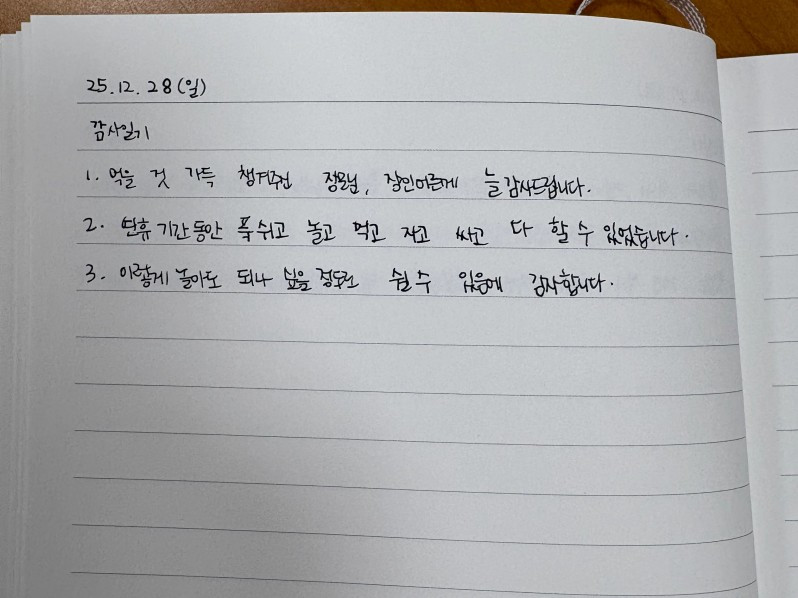 25.12.28(일)
감사일기
1. 먹을 것 가득 챙겨주신 장모님, 장인어른께 늘 감사드립니다.
2. 연휴 기간동안 푹 쉬고 놀고 먹고 자고 싸고 다 할 수 있었습니다.
3. 이렇게 놀아도 되나 싶을 정도로 쉴 수 있음에 감사합니다.